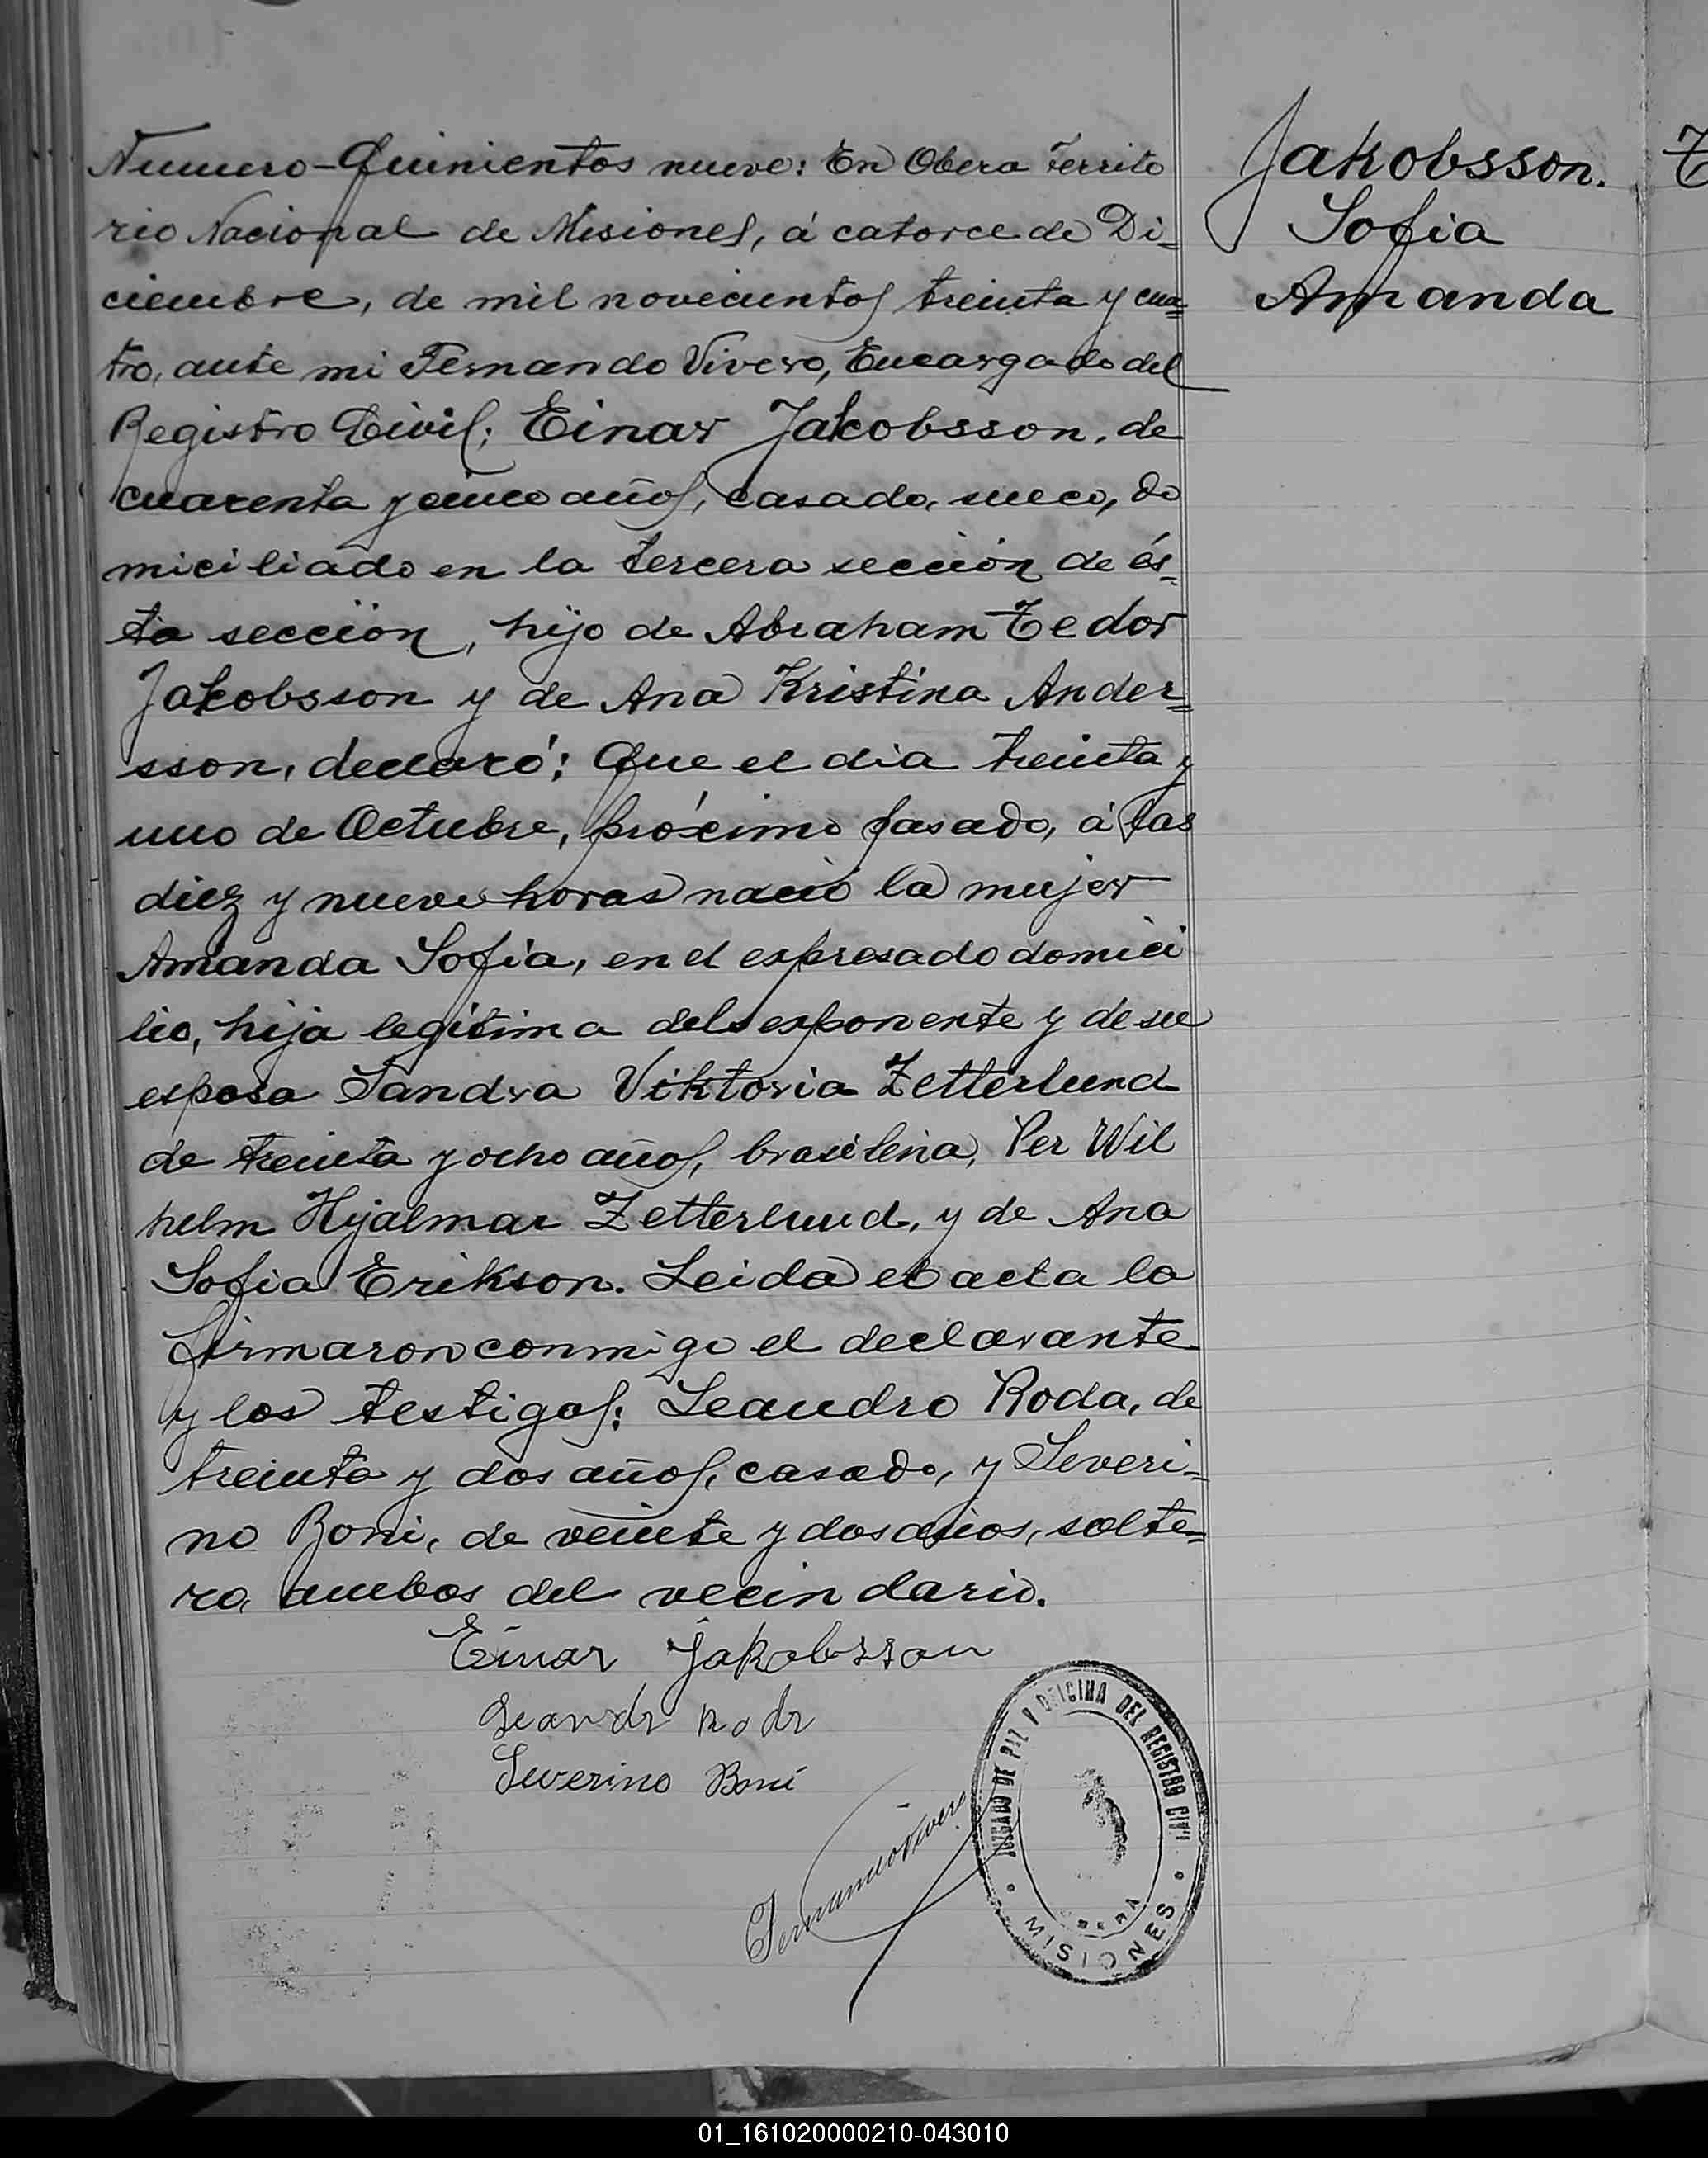 Numero-Quinientos nueve: En Obera Territo
rio Nacional de Misiones, á catorce de Di=
ciembre, de mil novecientos treinta y cua=
tro, ante mi Fernando Vivero, Encargado del
Registro Civil; Einar Jakobsson, de
cuarenta y cinco años, casado, sueco, do
miciliado en la tercera sección de és=
ta sección, hijo de Abraham Tedor
Jakobsson y de Ana Kristina Ander=
sson, declaró: Que el dia treinta y
uno de Octubre, próximo pasado, á las
diez y nueve horas nació la mujer
Amanda Sofia, en el espresado domici
lio, hija legitima del esponente y de su
esposa Sandra Viktoria Zetterlund
de treinta y ocho años, brasileña, Per Wil
helm Hjalmar Zetterlund, y de Ana
Sofia Erikson. Leida el acta la
firmaron conmigo el declarante
y los testigos: Leandro Roda, de
treinta y dos años, casado, y Severi=
no Boni, de veinte y dos años, solte=
ro, ambos del vecindario.
Einar Jakobsson
Leandr Rodr
Severino Boni
Fernando Vivero
JUZGADO DE PAZ Y OFICINA DEL REGISTRO CIVIL
OBERA
MISIONES
Jakobsson.
Sofia
Amanda
01_161020000210-043010